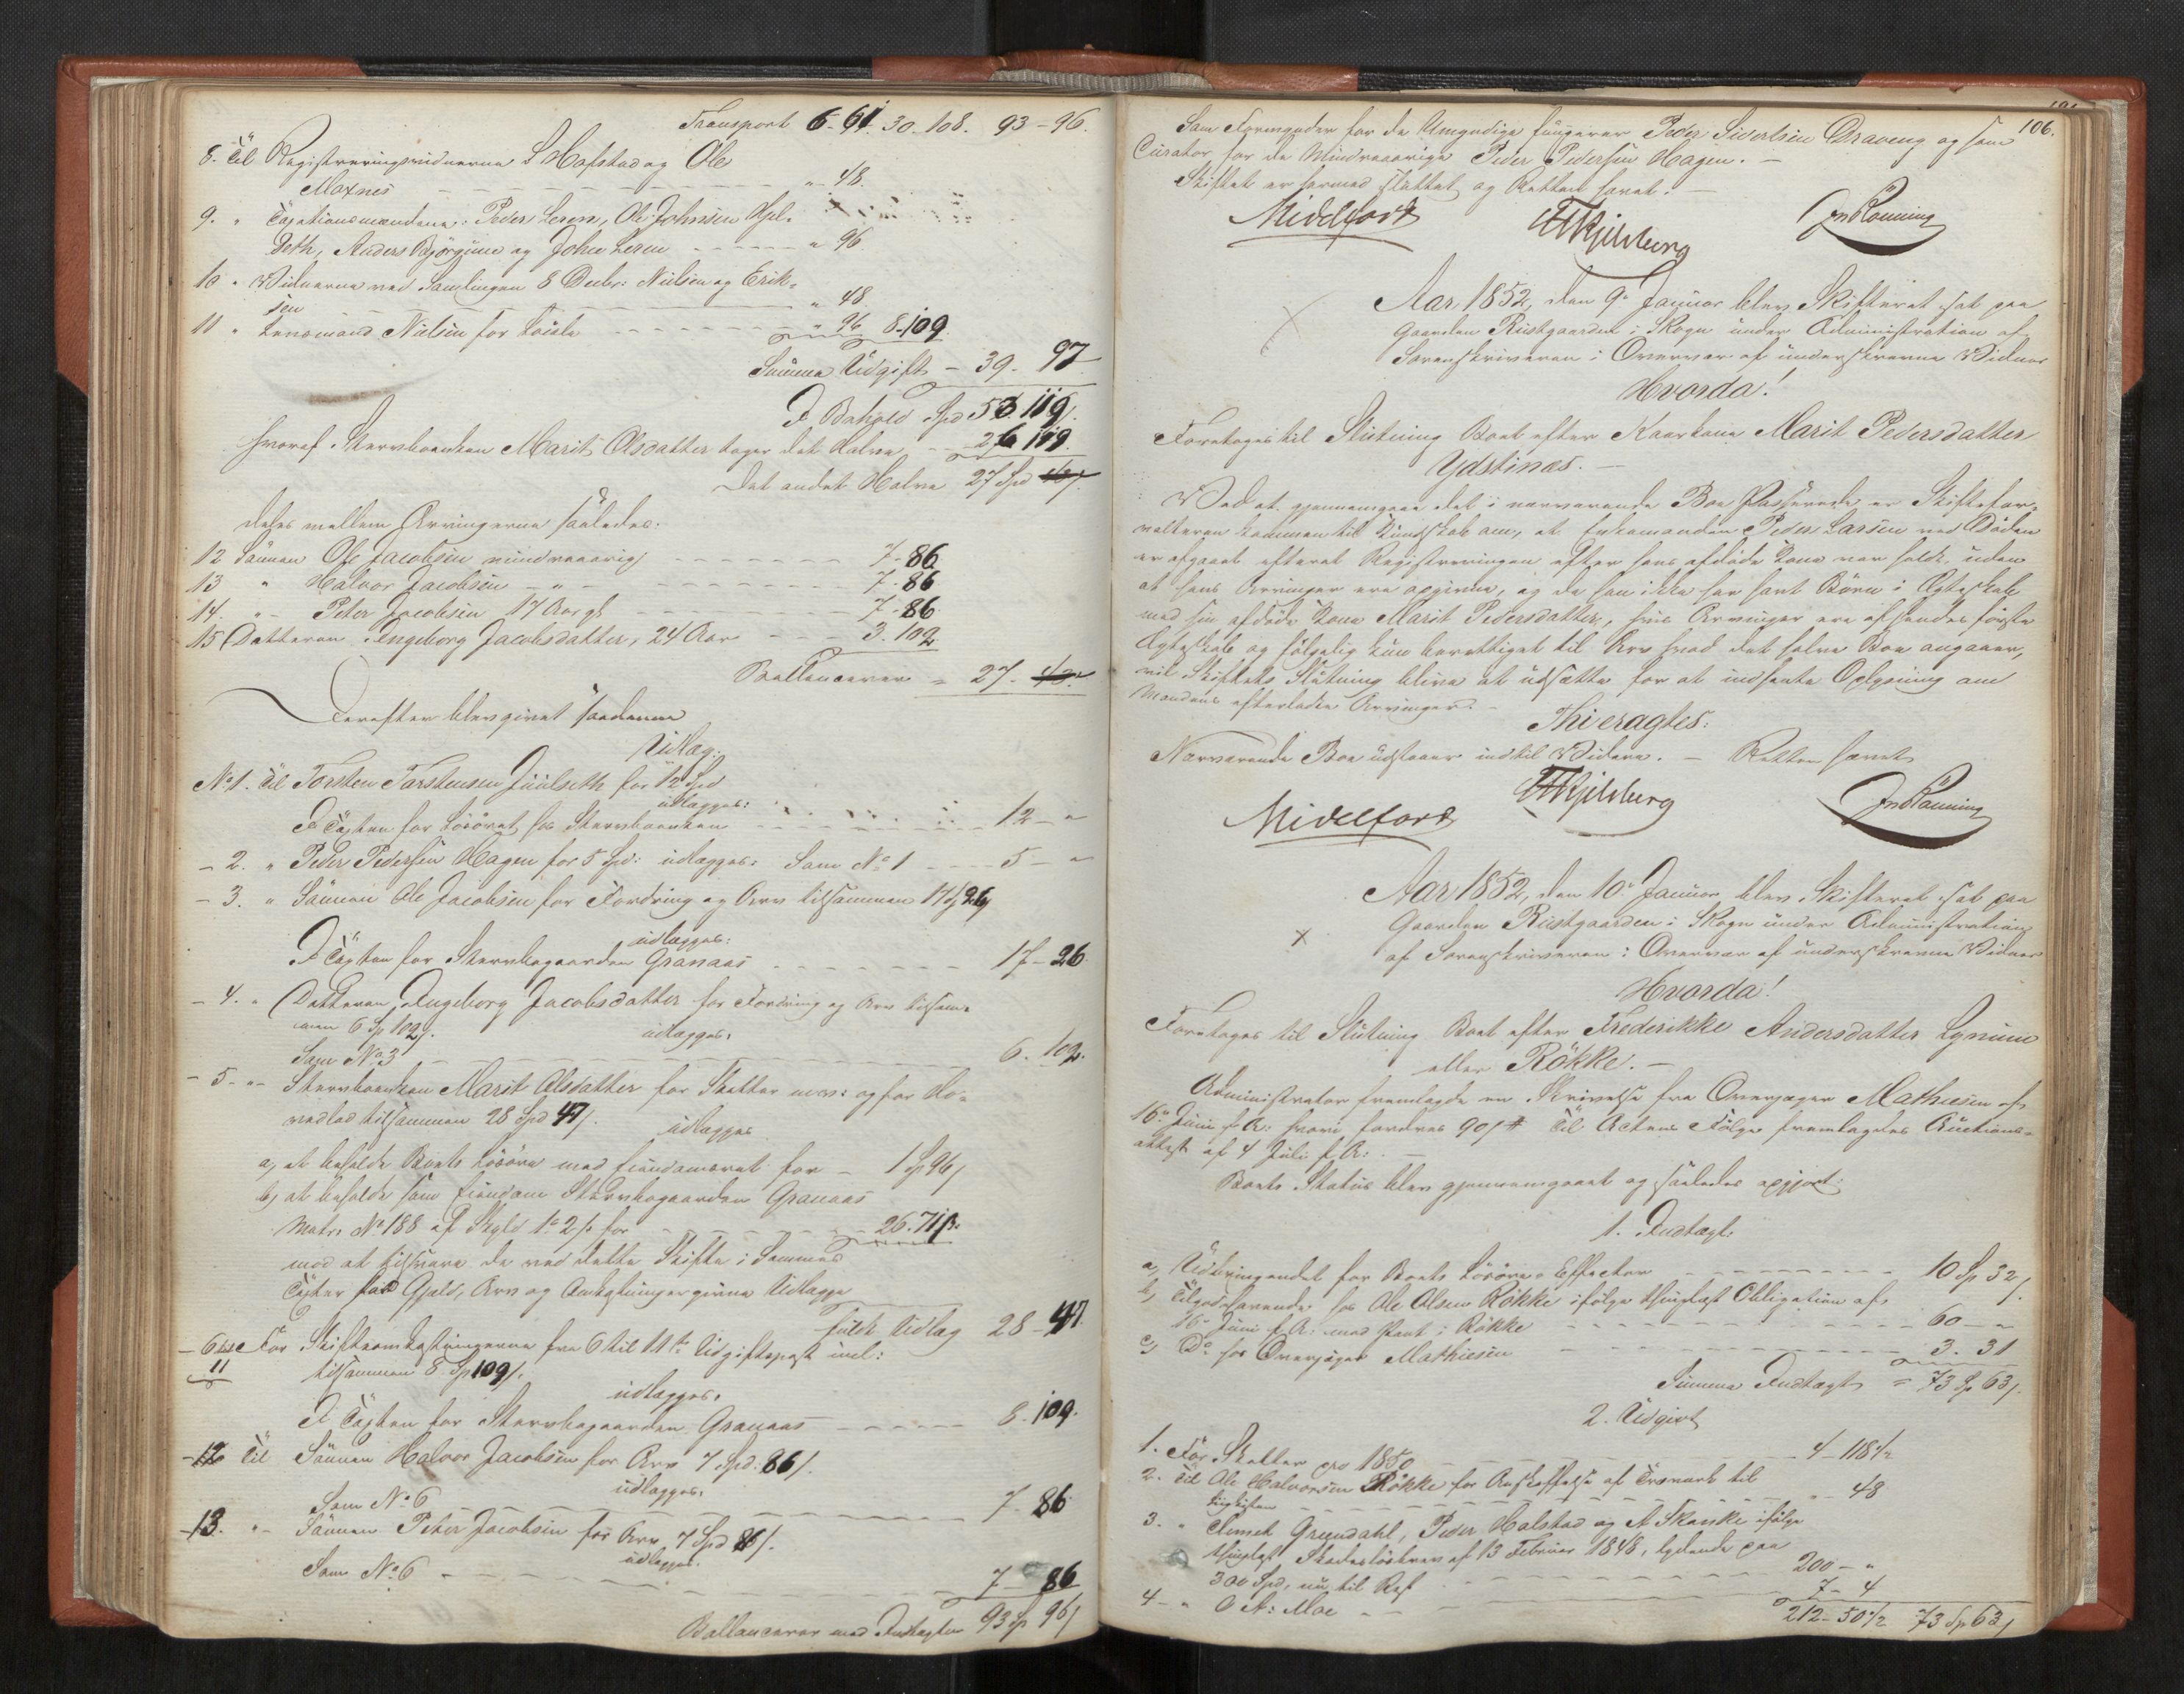 Transport 6-61. 30-108. 93-96.
8. Til Registreringsvidnerne S Hafstad og Ole
Moxnes " 48.
9. " Taxationsmændene: Peder Leren, Ole Johnsen
Anders Bjørgum og John Leren " 96
10 " Vidnerne ved Samlingen 8 Decbr: Nielsen og Erik-
sen " 48
11 " Lensmand Nielsen for " 96 8-109.
Summa Udgift - 39. 97
I Behold Spd 53. 119.
hvoraf Stervboenken Marit Olsdatter tager det Halve 26 119.
Det andet Halve 27 Spd
deles mellem Arvingerne saaledes:
12 Sønnen Ole Jacobsen mindreaarig 7-86
13 " Halvor Jacobsen - " - 7-86
14. " Peter Jacobsen 17 Aar gl 7-86
15 Datteren Ingeborg Jacobsdatter, 24 Aar 3. 102
Ballancerer = 27.
Derefter blev givet saadanne
Udlæg:
No 1. Til Torsten Torstensen Juulseth for 12 Spd
udlægges:
I Taxten for Løsøret hos Stervboenken 12 - "
- 2. " Peder Pedersen Hagen for 5 Spd: udlægges: Som No 1 5 - "
- 3. " Sønnen Ole Jacobsen for Fordring og Arv tilsammen 17 Sp 26
udlægges:
I Taxten for Stervbogaarden Granaas 17-26
- 4. " Datteren Ingeborg Jacobsdatter for Fordring og Arv tilsam-
men 6 Sp 102 s. udlægges:
Som No 3 6. 102.
- 5. " Stervboenken Marit Olsdatter for Skatter m.v: og for Ho-
vedlod tilsammen 28 Spd 47 s. udlægges
a, at beholde Boets Løsøre med Eiendomsret for - 1 Sp 96 s
b, at beholde som Eiendom Stervbogaarden Granaas
Matr. No 188 af Skyld 1 - 2 s. for 26. 71 s.
mod at tilsvare de ved dette Skifte i Sammes
Taxter for Gjæld, Arv og Omkostninger givne Udlægge
fuldt Udlæg 28-47
- 6 til For Skifteomkostningerne fra 6 til 11te Udgiftspost incl:
11 tilsammen 8 Sp 109 s.
udlægges:
I Taxten for Stervbogaarden Granaas 8. 109.
- 12 Til Sønnen Halvor Jacobsen for Arv 7 Spd: 86 s.
udlægges:
Som No 6 7-86
- 13. " Sønnen Peter Jacobsen for Arv 7 Spd 86 s.
udlægges:
Som No 6 7-86
Ballancerer med Indtægten 93 Sp 96 s
106.
Som Formynder for de Umyndige fungerer Peder Sivertsen Draveng og som
Curator for de Mindreaarige Peder Pedersen Hagen. -
Skiftet er hermed sluttet og Retten hævet. -
Midelfart FHKjelsberg JnRønning
Aar 1852, den 9de Januar blev Skifteret sat paa
Gaarden Ristgaarden i Skogn under Administration af
Sorenskriveren i Overvær af underskrevne Vidner
Hvorda!
Foretoges til Slutning Boet efter Kaarkone Marit Pedersdatter
Ydstinæs. -
Ved at gjennemgaae det i nærværende Boe Passerede er Skiftefor-
valteren kommen til Kundskab om, at Enkemanden Peder Larsen ved Døden
er afgaaet efterat Registreringen efter hans afdøde Kone var holdt, uden
at hans Arvinger ere opgivne, og da han ikke har havt Børn i Ægteskab
med sin afdøde Kone Marit Pedersdatter, hvis Arvinger ere af hendes første
Ægteskab og følgelig kun berettiget til Arv hvad det halve Boe angaaer,
vil Skiftets Slutning blive at udsætte for at indhente Oplysning om
Mandens efterladte Arvinger. -
Thi eragtes:
Nærværende Boe udstaaer indtil Videre. - Retten hævet
Midelfart FHKjelsberg JnRønning
Aar 1852, den 10de Januar blev Skifteret sat paa
Gaarden Ristgaarden i Skogn under Administration
af Sorenskriveren i Overvær af underskrevne Vidner
Hvorda!
Foretoges til Slutning Boet efter Frederikke Andersdatter Lynum
eller Røkke. -
Administrator fremlagde en Skrivelse fra Overjæger Mathiesen af
16de Juni f. A: hvori fordres 90 s # Til Actens Følge fremlagdes Auctions-
attest af 4 Juli f. A: -
Boets Status blev gjennemgaaet og saaledes opgjort:
1. Indtægt.
a, Udbringendet for Boets Løsøre-Effecter 10 Sp 32 s.
b, Tilgodehavende hos Ole Olsen Røkke ifølge thinglæst Obligation af
16de Juni f. A: med Pant i Røkke 60 - "
c, Do hos Overjæger Mathiesen 3. 31
Summa Indtægt = 73 Sp 63 s.
2. Udgivt
1. For Skatter pro 1850 4-118 1/2
2. Til Ole Halvorsen Røkke for Anskaffelse af Træværk til
Liigkisten " - 48
3. " Grendahl, Peder Halstad og A Skanke ifølge
thinglæst Skadesløsbrev af 13 Februar 1848, lydende paa
300 Spd, nu til Rest 200 - "
4 - " O A: Moe 7-4
212-50 1/2 73 Sp 63 s